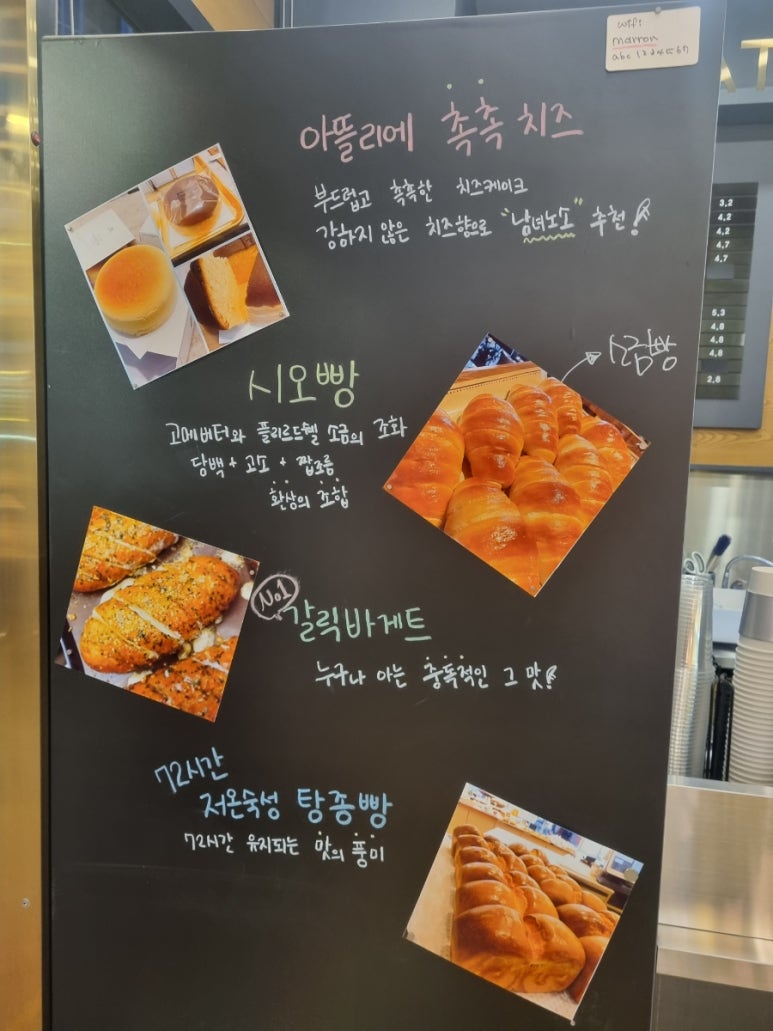 wifi
marron
abc1234567
아뜰리에 촉촉 치즈
부드럽고 촉촉한 치즈케이크
강하지 않은 치즈향으로 "남녀노소" 추천!
시오빵
소금빵
고메버터와 플뢰르드쉘 소금의 조화
담백 + 고소 + 짭쪼름
환상의 조합
No1
갈릭바게트
누구나 아는 중독적인 그 맛!
72시간
저온숙성 탕종빵
72시간 유지되는 맛의 풍미
3,2
4,2
4,2
4,7
4,7
5,3
4,8
4,8
4,8
2,8